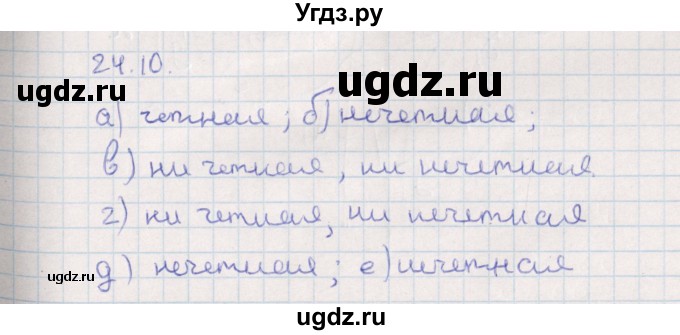 Угдз.ру
24.10.
ugdz.ru ugdz.ru ugdz.ru
а) четная; б) нечетная;
в) ни четная, ни нечетная.
г) ни четная, ни нечетная
ugdz.ru ugdz.ru ugdz.ru
д) нечетная; е) нечетная
ugdz.ru